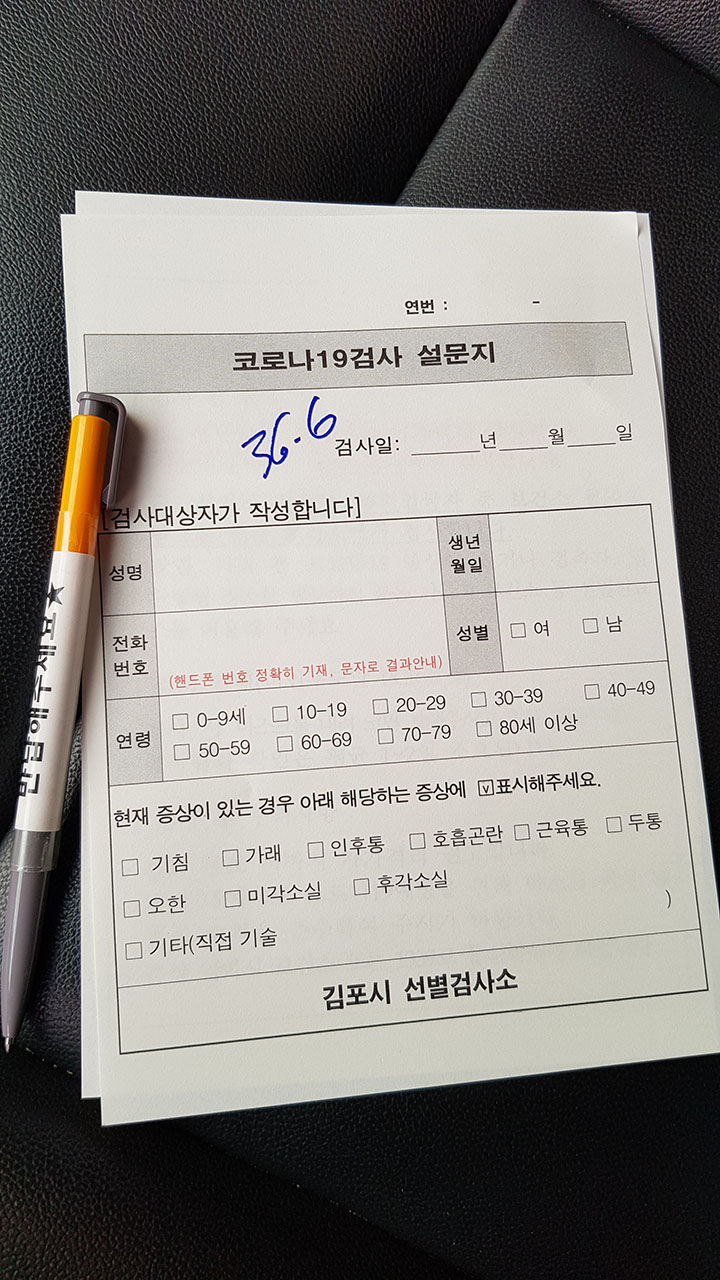 연번 : -
코로나19검사 설문지
36.6
검사일: ______년____월____일
[검사대상자가 작성합니다]
성명
생년
월일
전화
번호
(핸드폰 번호 정확히 기재, 문자로 결과안내)
성별 □ 여 □ 남
연령
□ 0-9세 □ 10-19 □ 20-29 □ 30-39 □ 40-49
□ 50-59 □ 60-69 □ 70-79 □ 80세 이상
현재 증상이 있는 경우 아래 해당하는 증상에 ☑표시해주세요.
□ 기침 □ 가래 □ 인후통 □ 호흡곤란 □ 근육통 □ 두통
□ 오한 □ 미각소실 □ 후각소실
□ 기타(직접 기술 )
김포시 선별검사소